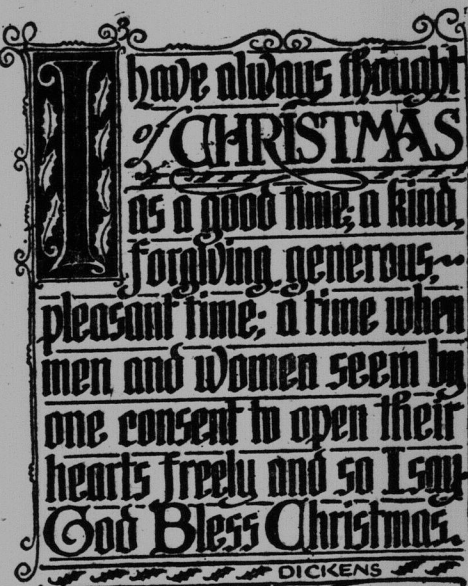 I have always thought
of CHRISTMAS
as a good time; a kind,
forgiving, generous,
pleasant time; a time when
men and women seem by
one consent to open their
hearts freely and so I say
God Bless Christmas.
DICKENS